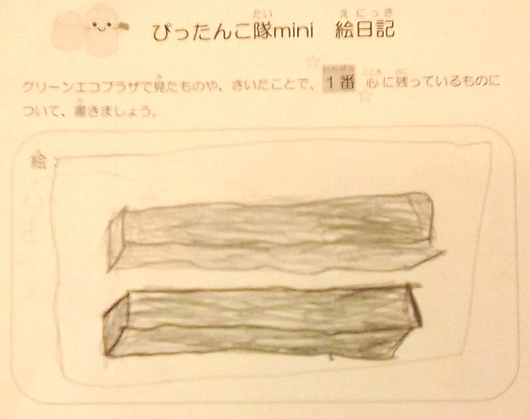 ぴったんこ隊mini 絵日記
グリーンエコプラザで見たものや、きいたことで、1番 心に残っているものに
ついて、書きましょう。
絵: